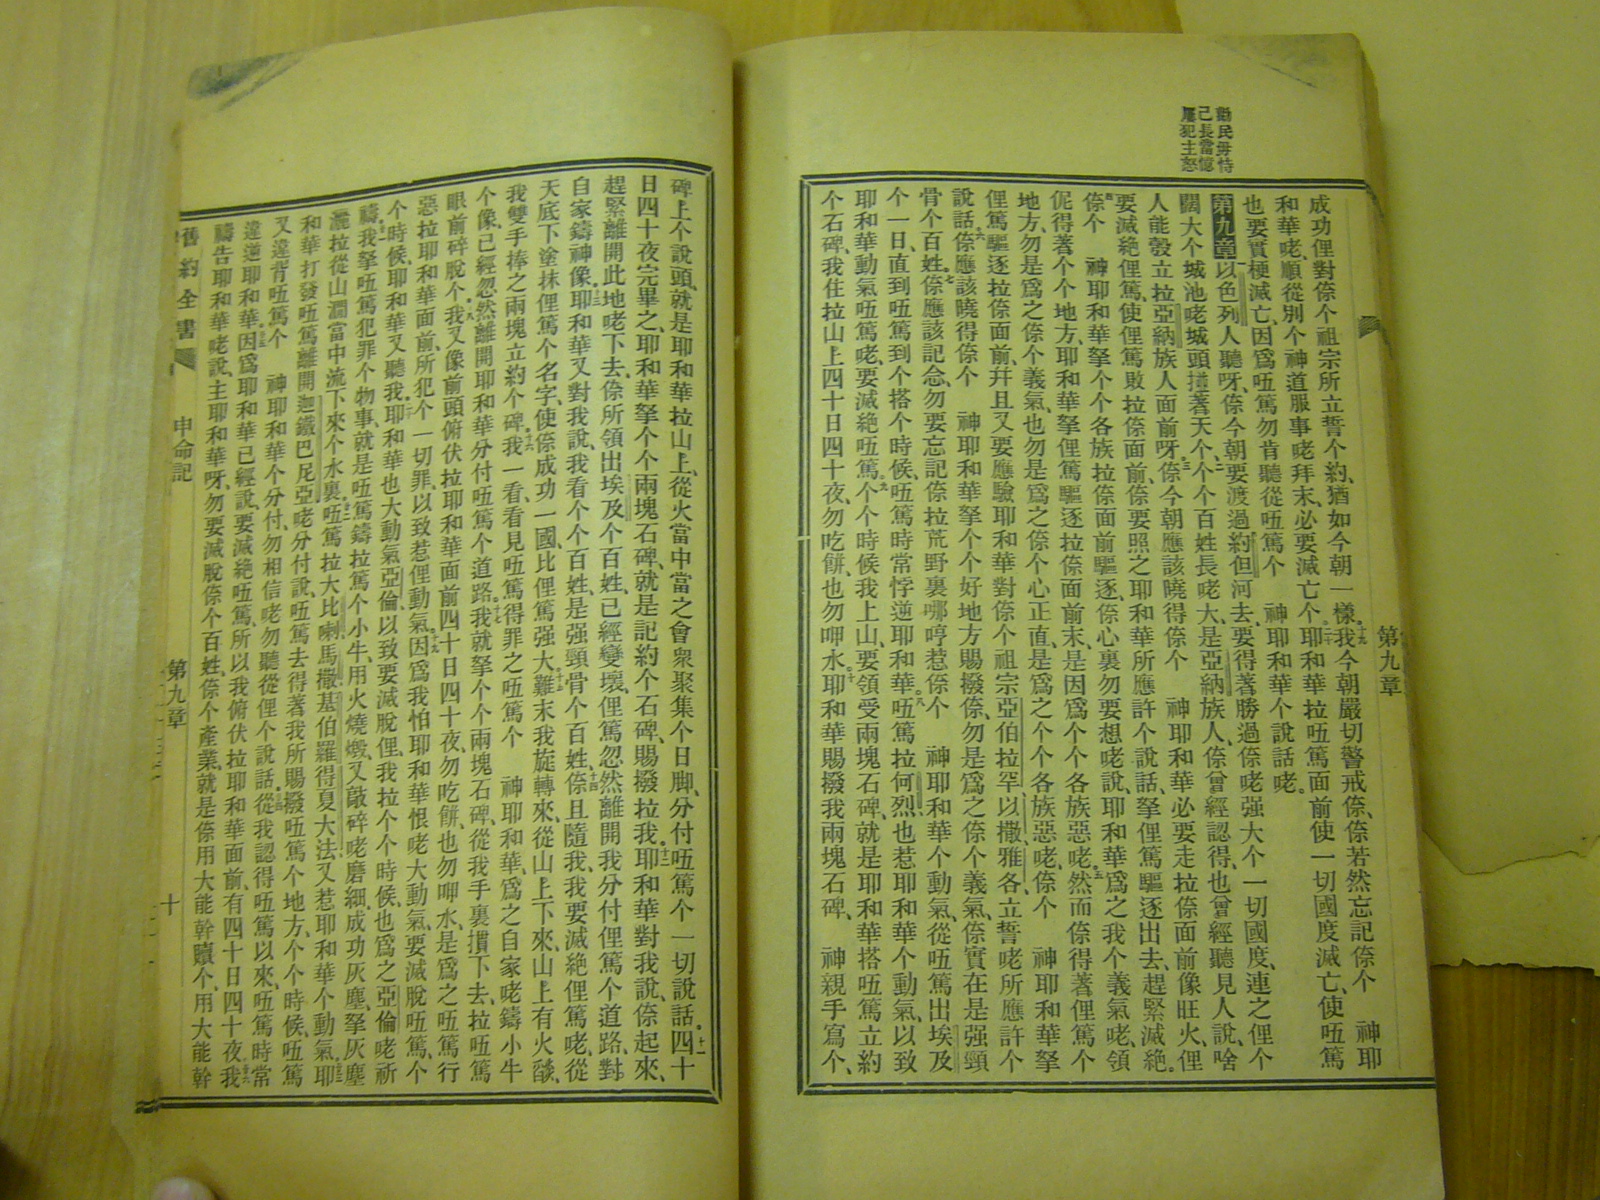 勸民毋恃
己長當憶
屢犯主怒
成功俚對㑚个祖宗所立誓个約、猶如今朝一樣、我今朝嚴切警戒㑚、㑚若然忘記㑚个　神耶
和華咾、順從別个神道服事咾拜末、必要滅亡个、耶和華拉唔篤面前使一切國度滅亡、使唔篤
也要實梗滅亡、因爲唔篤勿肯聽從唔篤个　神耶和華个說話咾。
第九章 以色列人聽呀、㑚今朝要渡過約但河去、要得著勝過㑚咾强大个一切國度、連之俚个
闊大个城池咾城頭撞著天个、个个百姓長咾大、是亞衲族人、㑚曾經認得、也曾經聽見人說、啥
人能彀立拉亞衲族人面前呀、㑚今朝應該曉得㑚个　神耶和華必要走拉㑚面前像旺火、俚
要滅絶俚篤、使俚篤敗拉㑚面前、㑚要照之耶和華所應許个說話、拏俚篤驅逐出去、趕緊滅絶。
㑚个　神耶和華拏个个各族拉㑚面前驅逐、㑚心裏勿要想咾說、耶和華爲之我个義氣咾、領
伲得著个个地方、耶和華拏俚篤驅逐拉㑚面前末、是因爲个个各族惡咾、然而㑚得著俚篤个
地方、勿是爲之㑚个義氣、也勿是爲之㑚个心正直、是爲之个个各族惡咾、㑚个　神耶和華拏
俚篤驅逐拉㑚面前、幷且又要應驗耶和華對㑚个祖宗亞伯拉罕、以撒、雅各、立誓咾所應許个
說話、㑚應該曉得㑚个　神耶和華拏个个好地方賜撥㑚、勿是爲之㑚个義氣、㑚實在是强頸
骨个百姓、㑚應該記念、勿要忘記㑚拉荒野裏哪哼惹㑚个　神耶和華个動氣、從唔篤出埃及
个一日、直到唔篤到个搭个時候、唔篤時常悖逆耶和華、唔篤拉何烈也惹耶和華个動氣、以致
耶和華動氣唔篤咾、要滅絶唔篤、个个時候我上山、要領受兩塊石碑、就是耶和華搭唔篤立約
个石碑、我住拉山上四十日四十夜、勿吃餅、也勿呷水、耶和華賜撥我兩塊石碑、　神親手寫个、
第九章
碑上个說頭、就是耶和華拉山上、從火當中當之會衆聚集个日脚、分付唔篤个一切說話、四十
日四十夜完畢之、耶和華拏个个兩塊石碑、就是記約个石碑、賜撥拉我、耶和華對我說、㑚起來、
趕緊離開此地咾下去、㑚所領出埃及个百姓、已經變壞、俚篤忽然離開我分付俚篤个道路、對
自家鑄神像、耶和華又對我說、我看个个百姓、是强頸骨个百姓、㑚且隨我、我要滅絶俚篤咾、從
天底下塗抹俚篤个名字、使㑚成功一國、比俚篤强大難末我旋轉來、從山上下來、山上有火燄、
我雙手捧之兩塊立約个碑、我一看、看見唔篤得罪之唔篤个　神耶和華、爲之自家咾鑄小牛
个像、已經忽然離開耶和華分付唔篤个道路、我就拏个个兩塊石碑、從我手裏摜下去、拉唔篤
眼前碎脫个、我又像前頭俯伏拉耶和華面前四十日四十夜、勿吃餅也勿呷水、是爲之唔篤行
惡拉耶和華面前、所犯个一切罪、以致惹俚動氣、因爲我怕耶和華恨咾大動氣、要滅脫唔篤、个
个時候、耶和華又聽我、耶和華也大動氣亞倫、以致要滅脫俚、我拉个个時候、也爲之亞倫咾祈
禱、我拏唔篤犯罪个物事、就是唔篤鑄拉篤个小牛、用火燒燬、又敲碎咾磨細、成功灰塵、拏灰塵
灑拉從山澗當中流下來个水裏、唔篤拉大比喇、馬撒、基伯羅得夏大法、又惹耶和華个動氣、耶
和華打發唔篤離開迦鐵巴尼亞咾分付說、唔篤去得著我所賜撥唔篤个地方、个个時候、唔篤
又違背唔篤个　神耶和華个分付、勿相信咾勿聽從俚个說話、從我認得唔篤以來、唔篤時常
違逆耶和華、因爲耶和華已經說、要滅絶唔篤、所以我俯伏拉耶和華面前、有四十日四十夜、我
禱告耶和華咾說、主耶和華呀、勿要滅脫㑚个百姓、㑚个產業、就是㑚用大能幹贖个、用大能幹
舊約全書　申命記　第九章　十